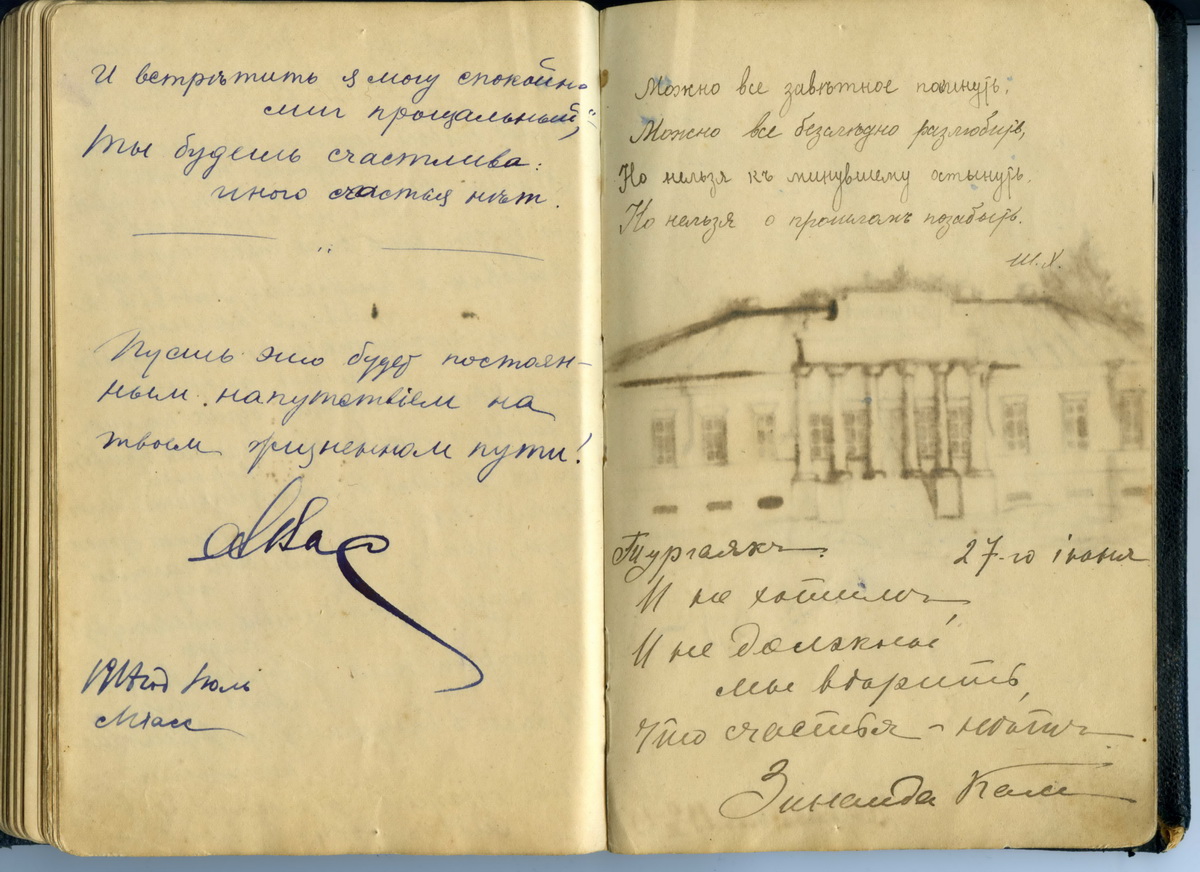 И встрѣтить я могу спокойно
миг прощальный,"
Ты будешь счастлива:
иного счастья нѣт.
Пусть это будет постоян-
ным напутствіем на
твоем жизненном пути!
год Юль
Міасс
Можно все завѣтное покинуть,
Можно все безслѣдно разлюбить,
Но нельзя къ минувшему остынуть.
Но нельзя о прошломъ позабыть.
Ш. Х.
Тургаякъ. 27-го іюня
И не хотимъ,
И не должны
мы вѣрить,
Что счастья - нѣтъ.
Зинаида